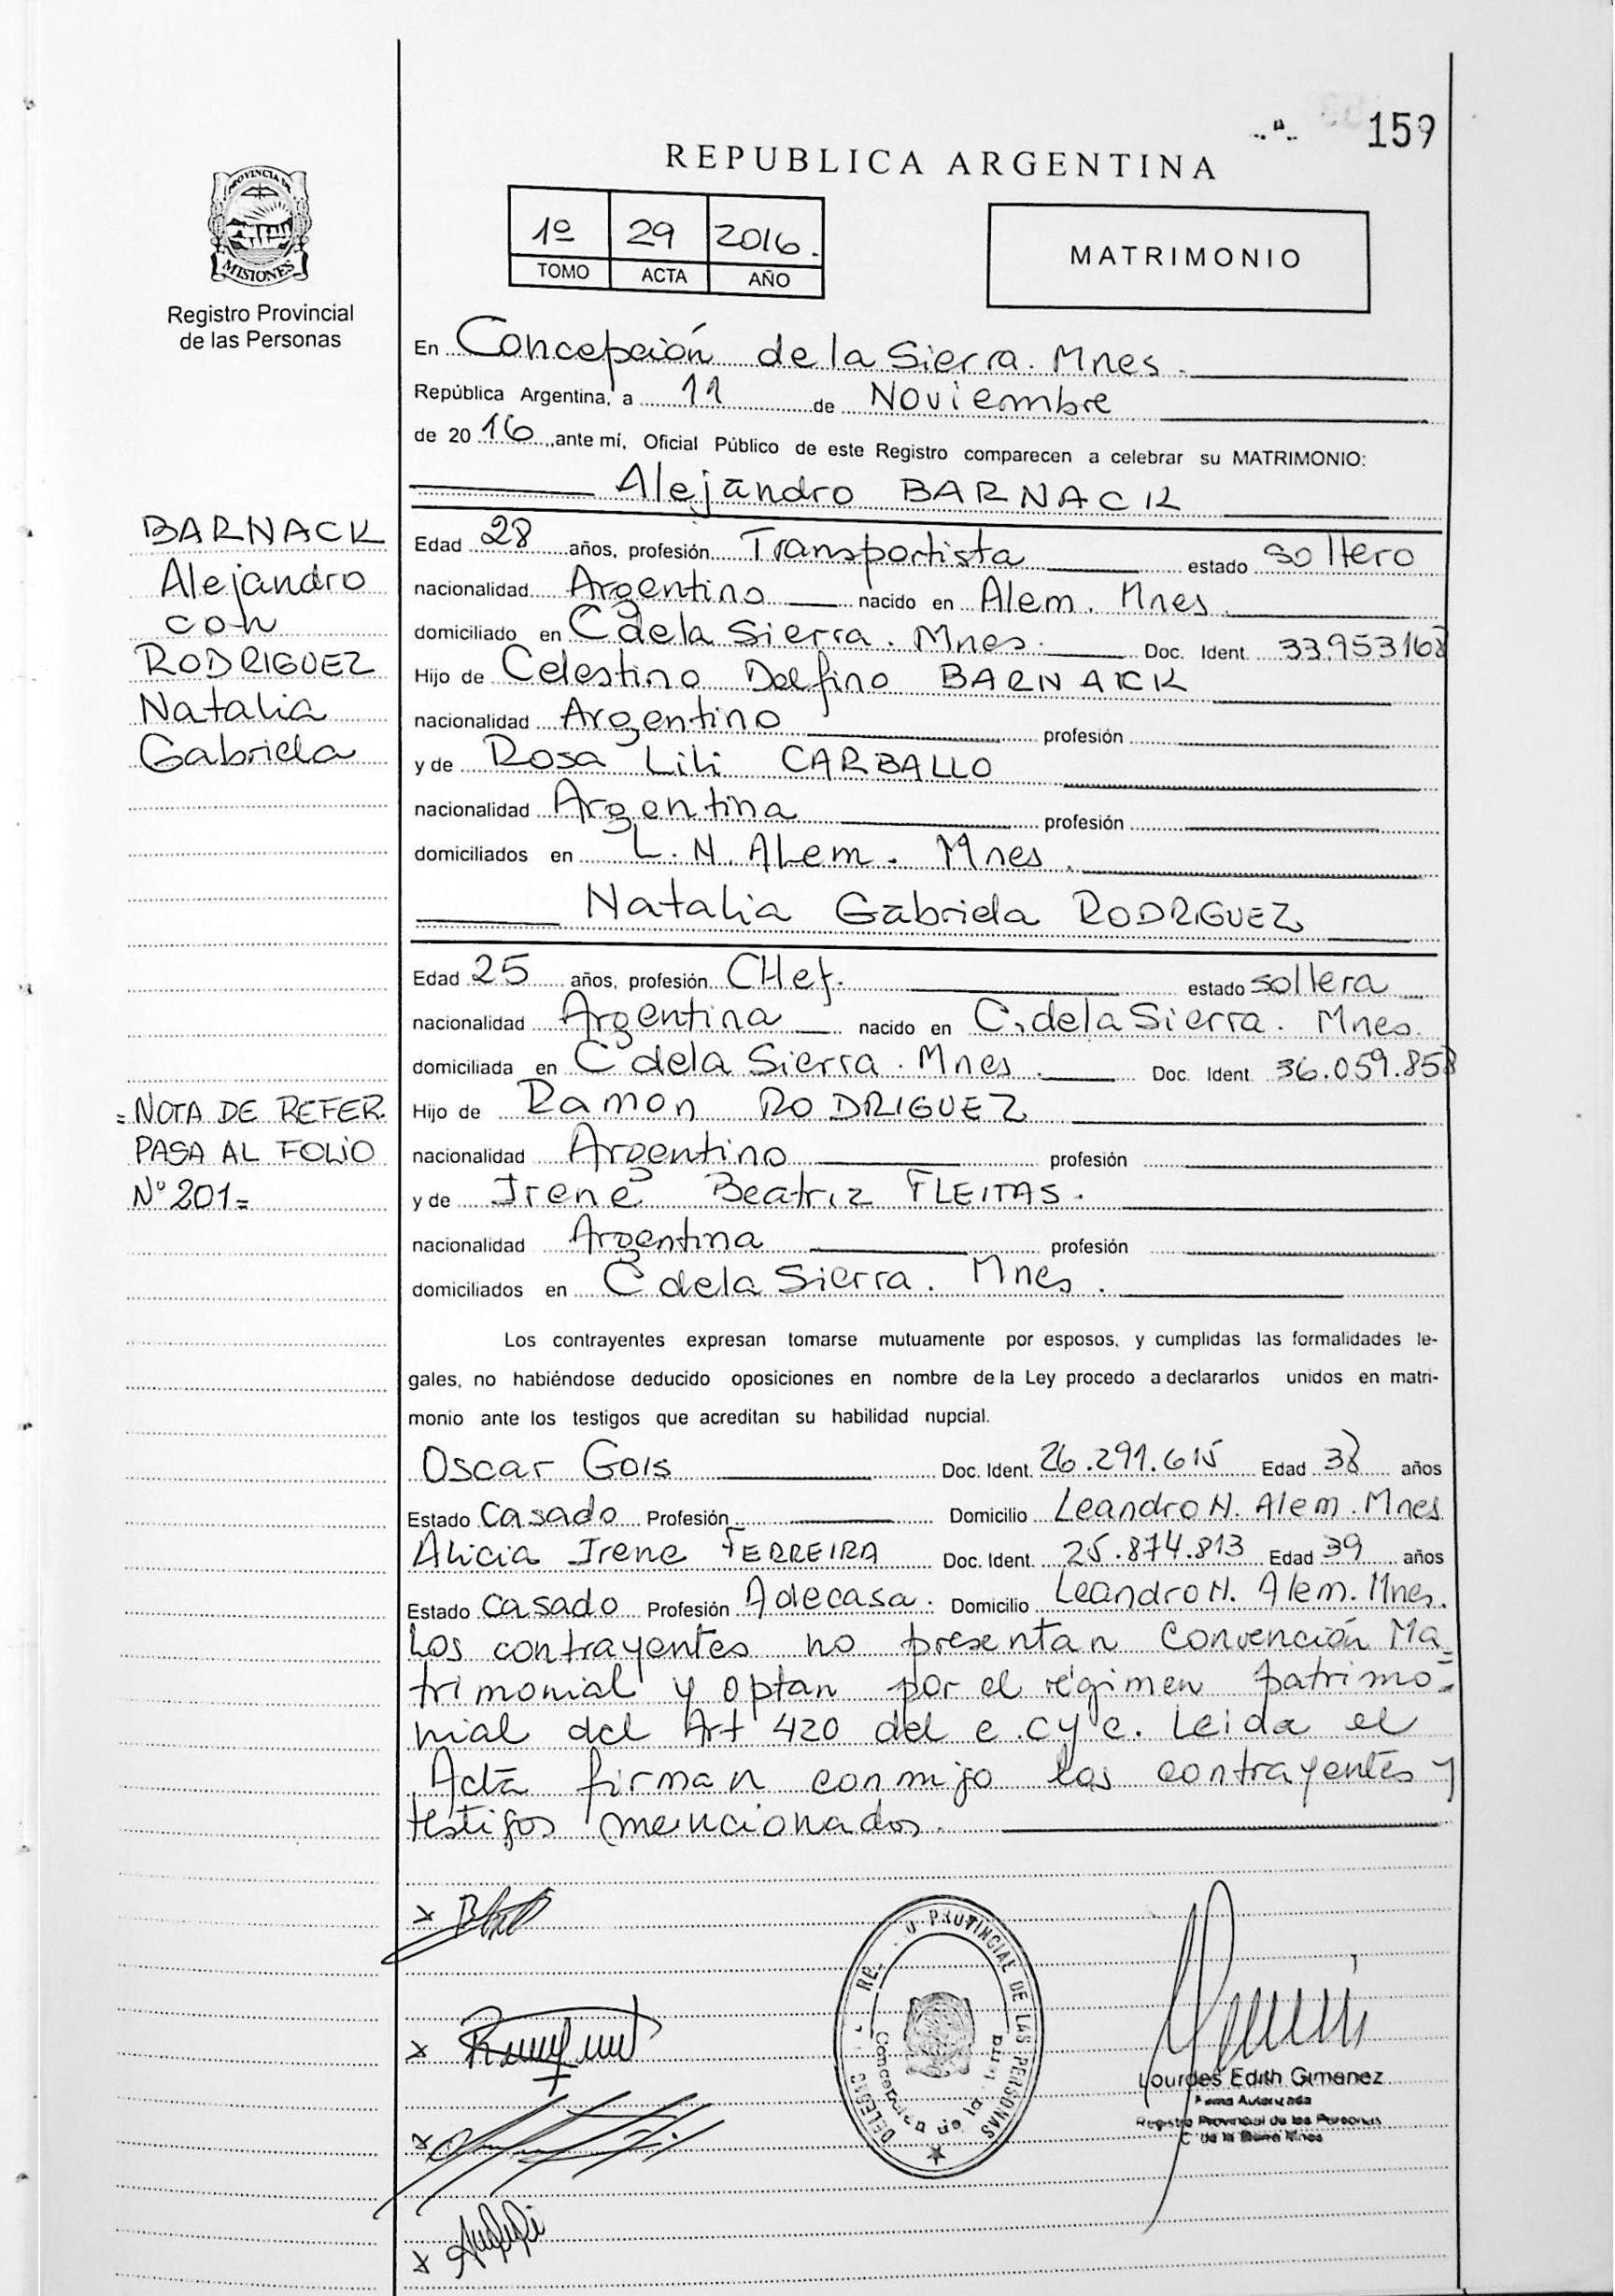 159
REPUBLICA ARGENTINA
PROVINCIA DE
MISIONES
Registro Provincial
de las Personas
1º 29 2016.
TOMO ACTA AÑO
MATRIMONIO
En Concepción de la Sierra. Mnes.
República Argentina, a 11 de Noviembre
de 2016, ante mí, Oficial Público de este Registro comparecen a celebrar su MATRIMONIO:
Alejandro BARNACK
BARNACK
Alejandro
con
RODRIGUEZ
Natalia
Gabriela
Edad 28 años, profesión Transportista estado soltero
nacionalidad Argentino nacido en Alem. Mnes.
domiciliado en C dela Sierra. Mnes. Doc. Ident. 33.953168
Hijo de Celestino Delfino BARNACK
nacionalidad Argentino profesión
y de Rosa Lili CARBALLO
nacionalidad Argentina profesión
domiciliados en L. N. ALem. Mnes.
Natalia Gabriela RODRIGUEZ
Edad 25 años, profesión CHef. estado soltera
nacionalidad Argentina nacido en C. dela Sierra. Mnes.
domiciliada en C dela Sierra. Mnes. Doc. Ident. 36.059.858
Hijo de Ramon RODRIGUEZ
nacionalidad Argentino profesión
y de Irene Beatriz FLEITAS.
nacionalidad Argentina profesión
domiciliados en C dela Sierra. Mnes.
=NOTA DE REFER.
PASA AL FOLIO
Nº 201=
Los contrayentes expresan tomarse mutuamente por esposos, y cumplidas las formalidades le-
gales, no habiéndose deducido oposiciones en nombre de la Ley procedo a declararlos unidos en matri-
monio ante los testigos que acreditan su habilidad nupcial.
Oscar Gois Doc. Ident. 26.291.615 Edad 38 años
Estado Casado Profesión Domicilio Leandro N. Alem. Mnes
Alicia Irene FERREIRA Doc. Ident. 25.874.813 Edad 39 años
Estado Casado Profesión Adecasa. Domicilio Leandro N. Alem. Mnes.
Los contrayentes no presentan Convención Ma=
trimonial y optan por el régimen patrimo=
nial del Art 420 del c.cyc. Leida el
Acta firman conmigo los contrayentes y
testigos mencionados.
PROVINCIAL DE LAS PERSONAS
Lourdes Edith Gimenez
Firma Autorizada
Registro Provincial de las Personas
C. de la Sierra Mnes